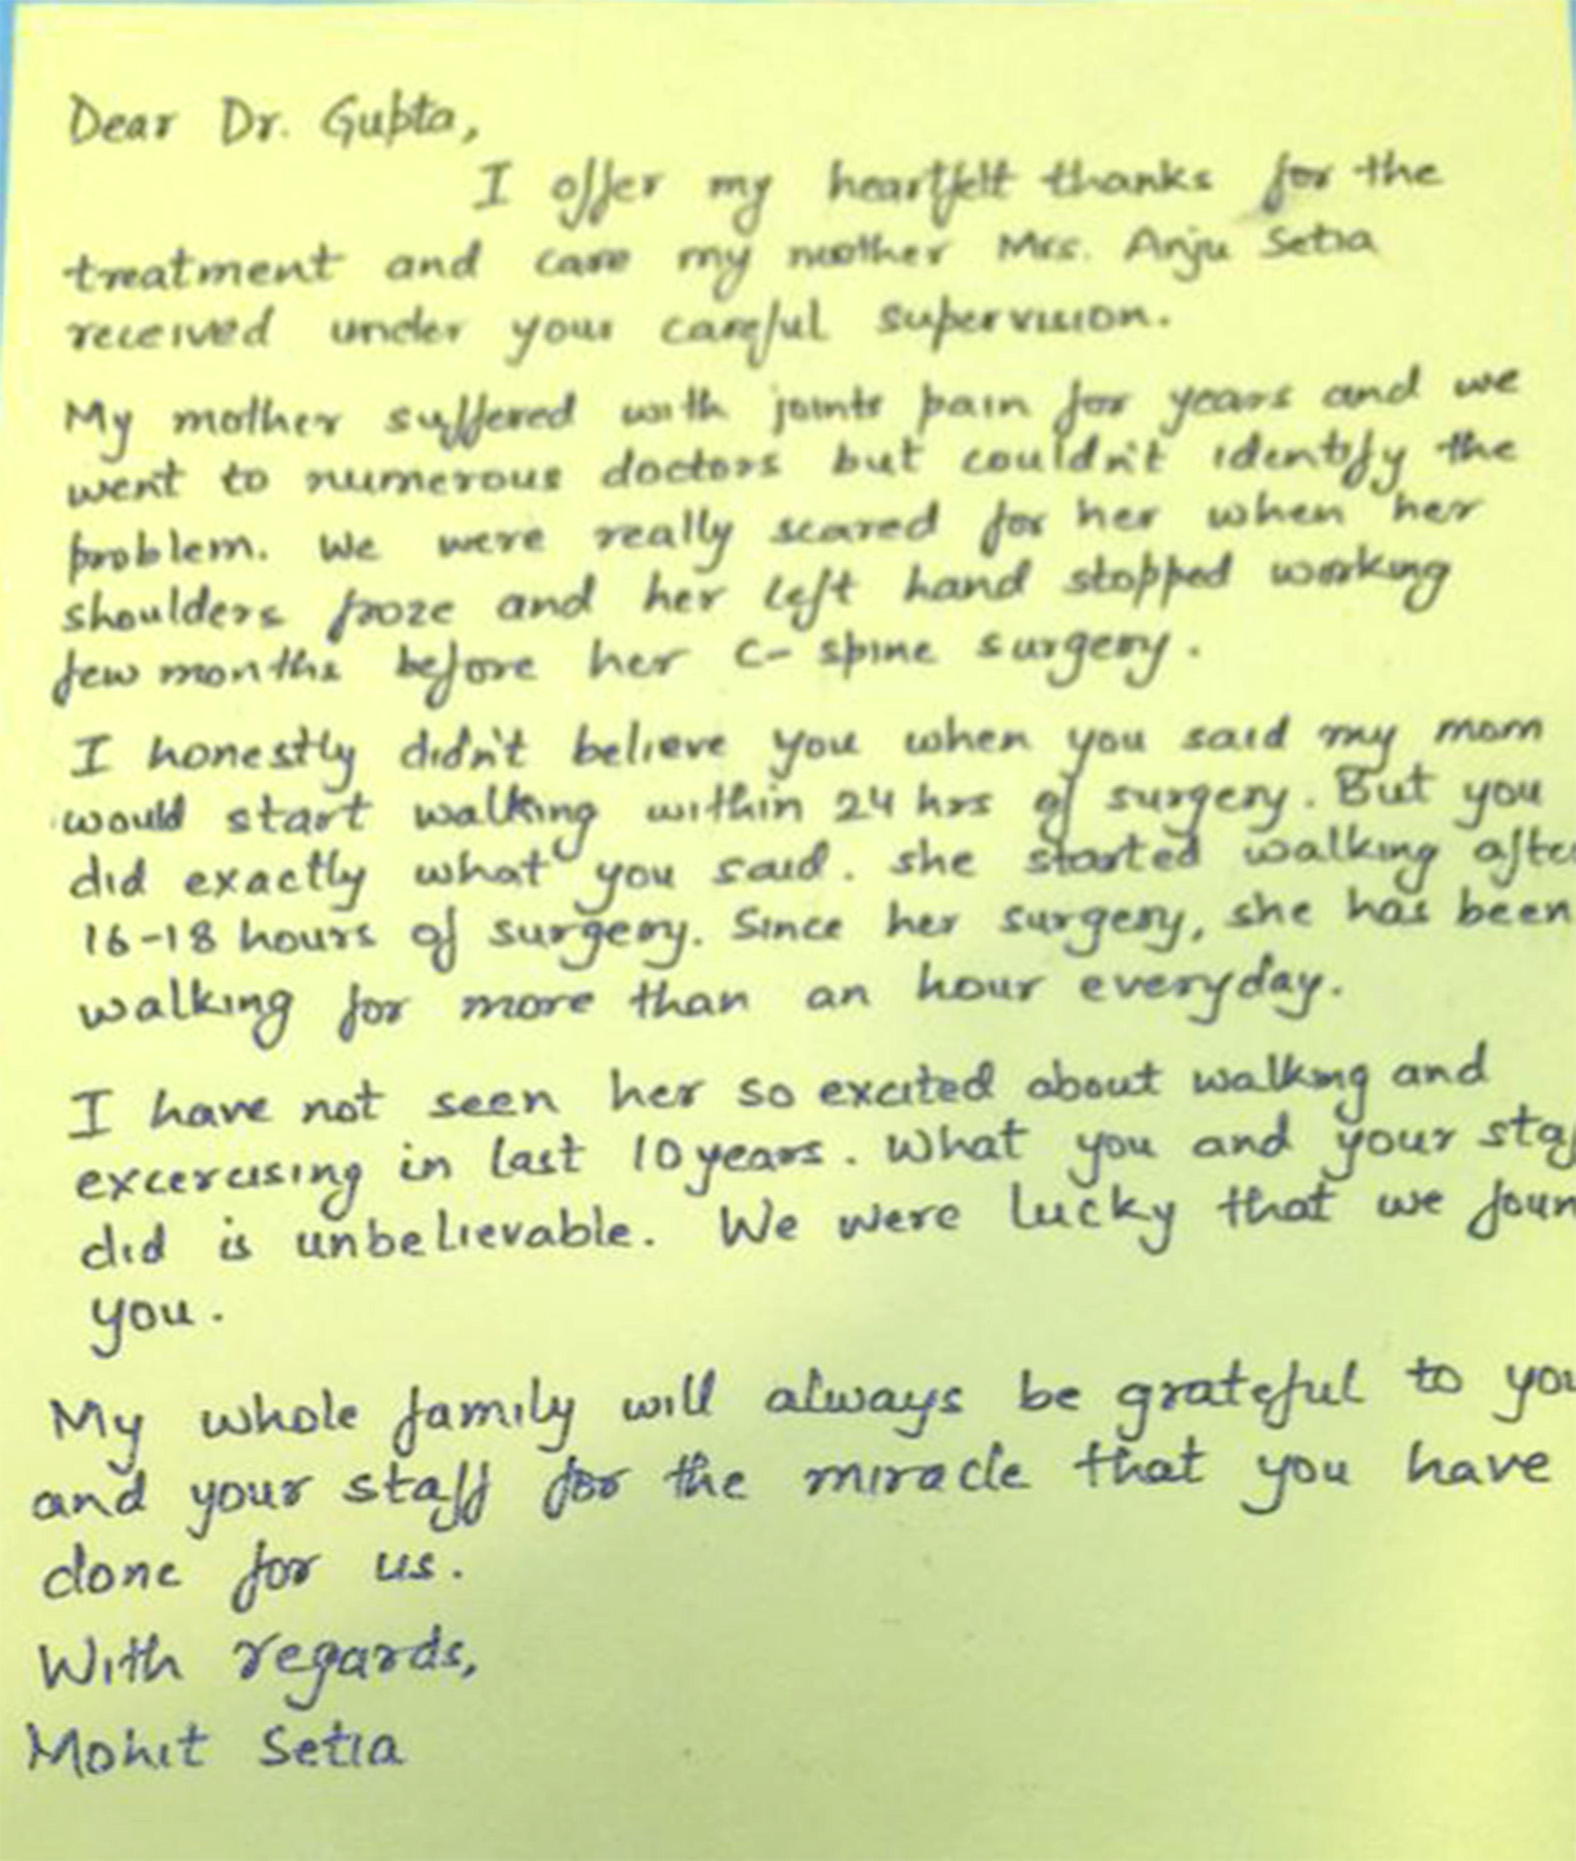 Dear Dr. Gupta,
I offer my heartfelt thanks for the
treatment and care my mother Mrs. Anju Setia
received under your careful supervision.
My mother suffered with joints pain for years and we
went to numerous doctors but couldn't identify the
problem. We were really scared for her when her
shoulders froze and her left hand stopped working
few months before her C-spine surgery.
I honestly didn't believe you when you said my mom
would start walking within 24 hrs of surgery. But you
did exactly what you said. she started walking afte
16-18 hours of surgery. Since her surgery, she has been
walking for more than an hour everyday.
I have not seen her so excited about walking and
excercising in last 10 years. What you and your sta
did is unbelievable. We were lucky that we foun
you.
My whole family will always be grateful to you
and your staff for the miracle that you have
done for us.
With regards,
Mohit Setia